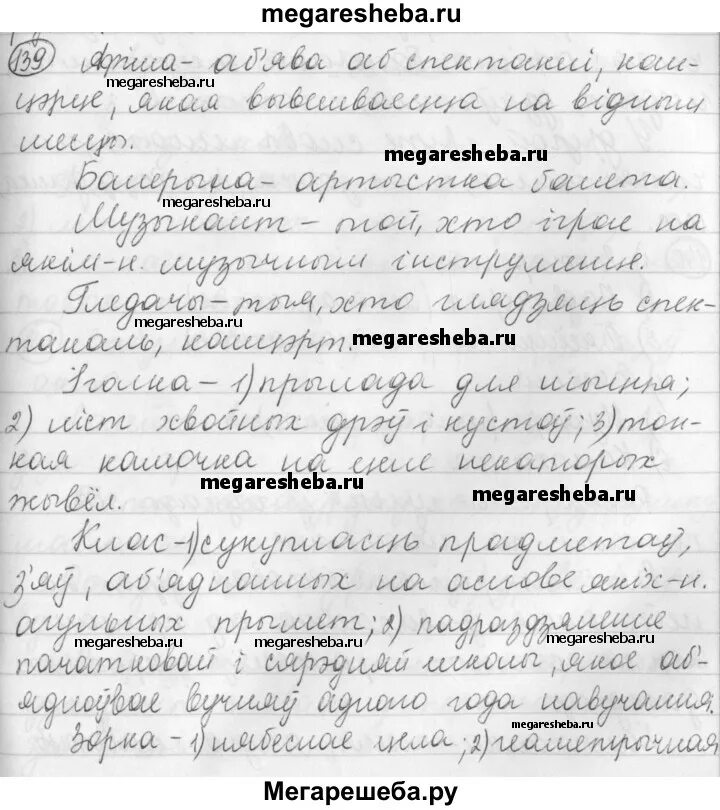 megaresheba.ru
139 Афіша – аб'ява аб спектаклі, кан-
megaresheba.ru
megaresheba.ru
цэрце, якая вывешваецца на відным
месцы.
megaresheba.ru
Балерына – артыстка балета.
megaresheba.ru
megaresheba.ru
Музыкант – той, хто іграе на
якім-н. музычным інструменце.
Гледачы – тыя, хто глядзяць спек-
megaresheba.ru
megaresheba.ru
такаль, канцэрт.
Іголка – 1) прылада для шыцця;
2) ліст хвойных дрэў і кустоў; 3) тон-
кая калючка на целе некаторых
megaresheba.ru
megaresheba.ru
жывёл.
Клас – 1) сукупнасць прадметаў,
з'яў, аб'яднанных на аснове якіх-н.
агульных прымет; 2) падраздзяленне
megaresheba.ru
megaresheba.ru
megaresheba.ru
пачатковай і сярэдняй школы, якое аб'-
ядноўвае вучняў аднаго года навучання.
megaresheba.ru
Зорка – 1) нябеснае цела; 2) геаметрычная
megaresheba.ru
Мегарешеба.ру